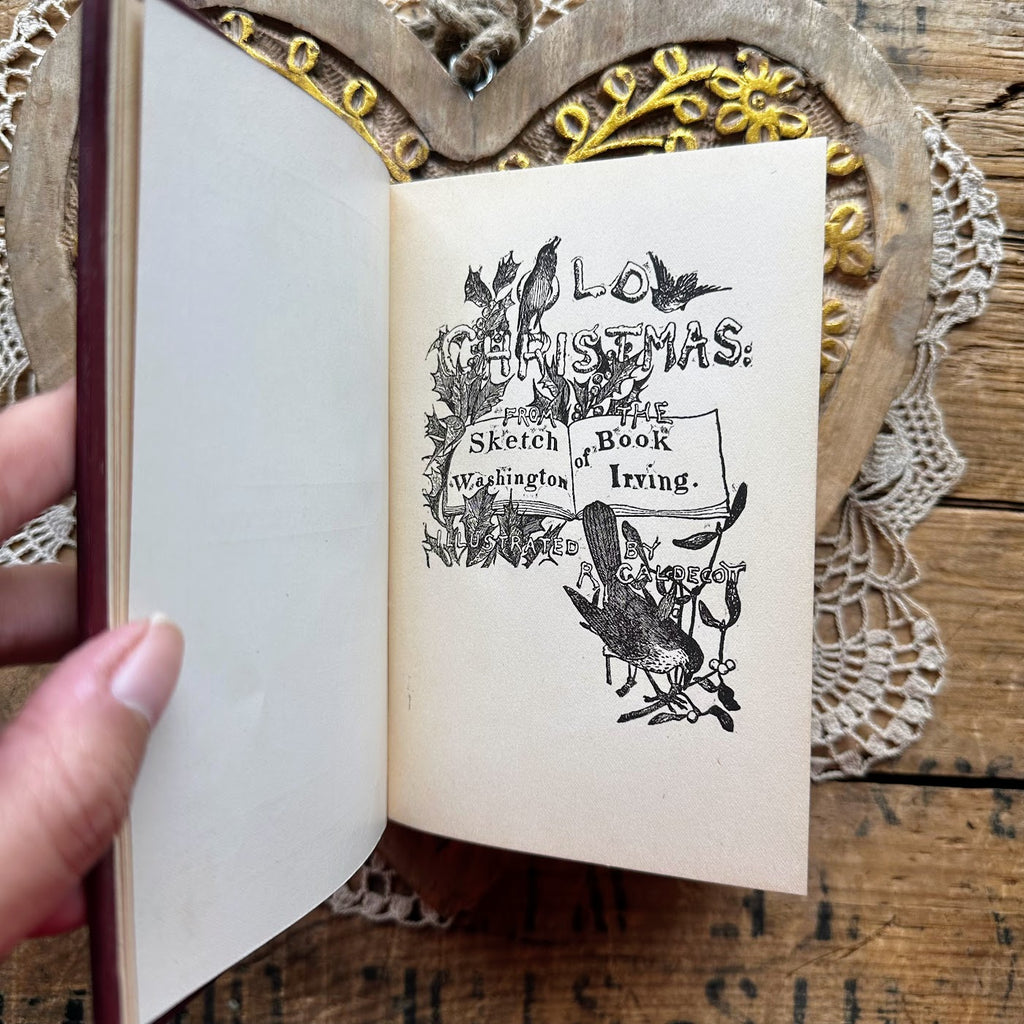 OLD
CHRISTMAS:
FROM THE
Sketch Book
of
Washington Irving.
ILLUSTRATED BY
R. CALDECOTT